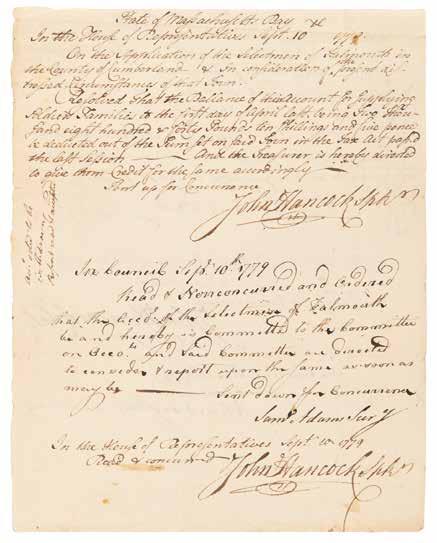 State of Massachusetts Bay &
In the House of Representatives Sept. 10 1779
On the Application of the Selectmen of Falmouth in
the County of Cumberland & In consideration of the present dis=
tressed Circumstances of that Town.
Resolved that the Ballance of their Account for Supplying
Soldiers Families to the first day of April last, being Five thou=
sand eight hundred & forty Pounds ten shillings and five pence
be deducted out of the Sum set on said Town in the Tax Act pass'd
the last Session — And the Treasurer is hereby directed
to give them Credit for the same accordingly —
Sent up for Concurrence
John Hancock Spkr
In Council Sept. 10th 1779
Read & Nonconcurred and Ordered
that the Acco. of the Selectmen of Falmouth
be and hereby is Committed to the Committee
on Acco.ts and said Committee are directed
to consider & report upon the same as soon as
may be — Sent down for Concurrence
Saml Adams Secy
In the House of Representatives Sept 10 1779
Read & concurred
John Hancock Spkr